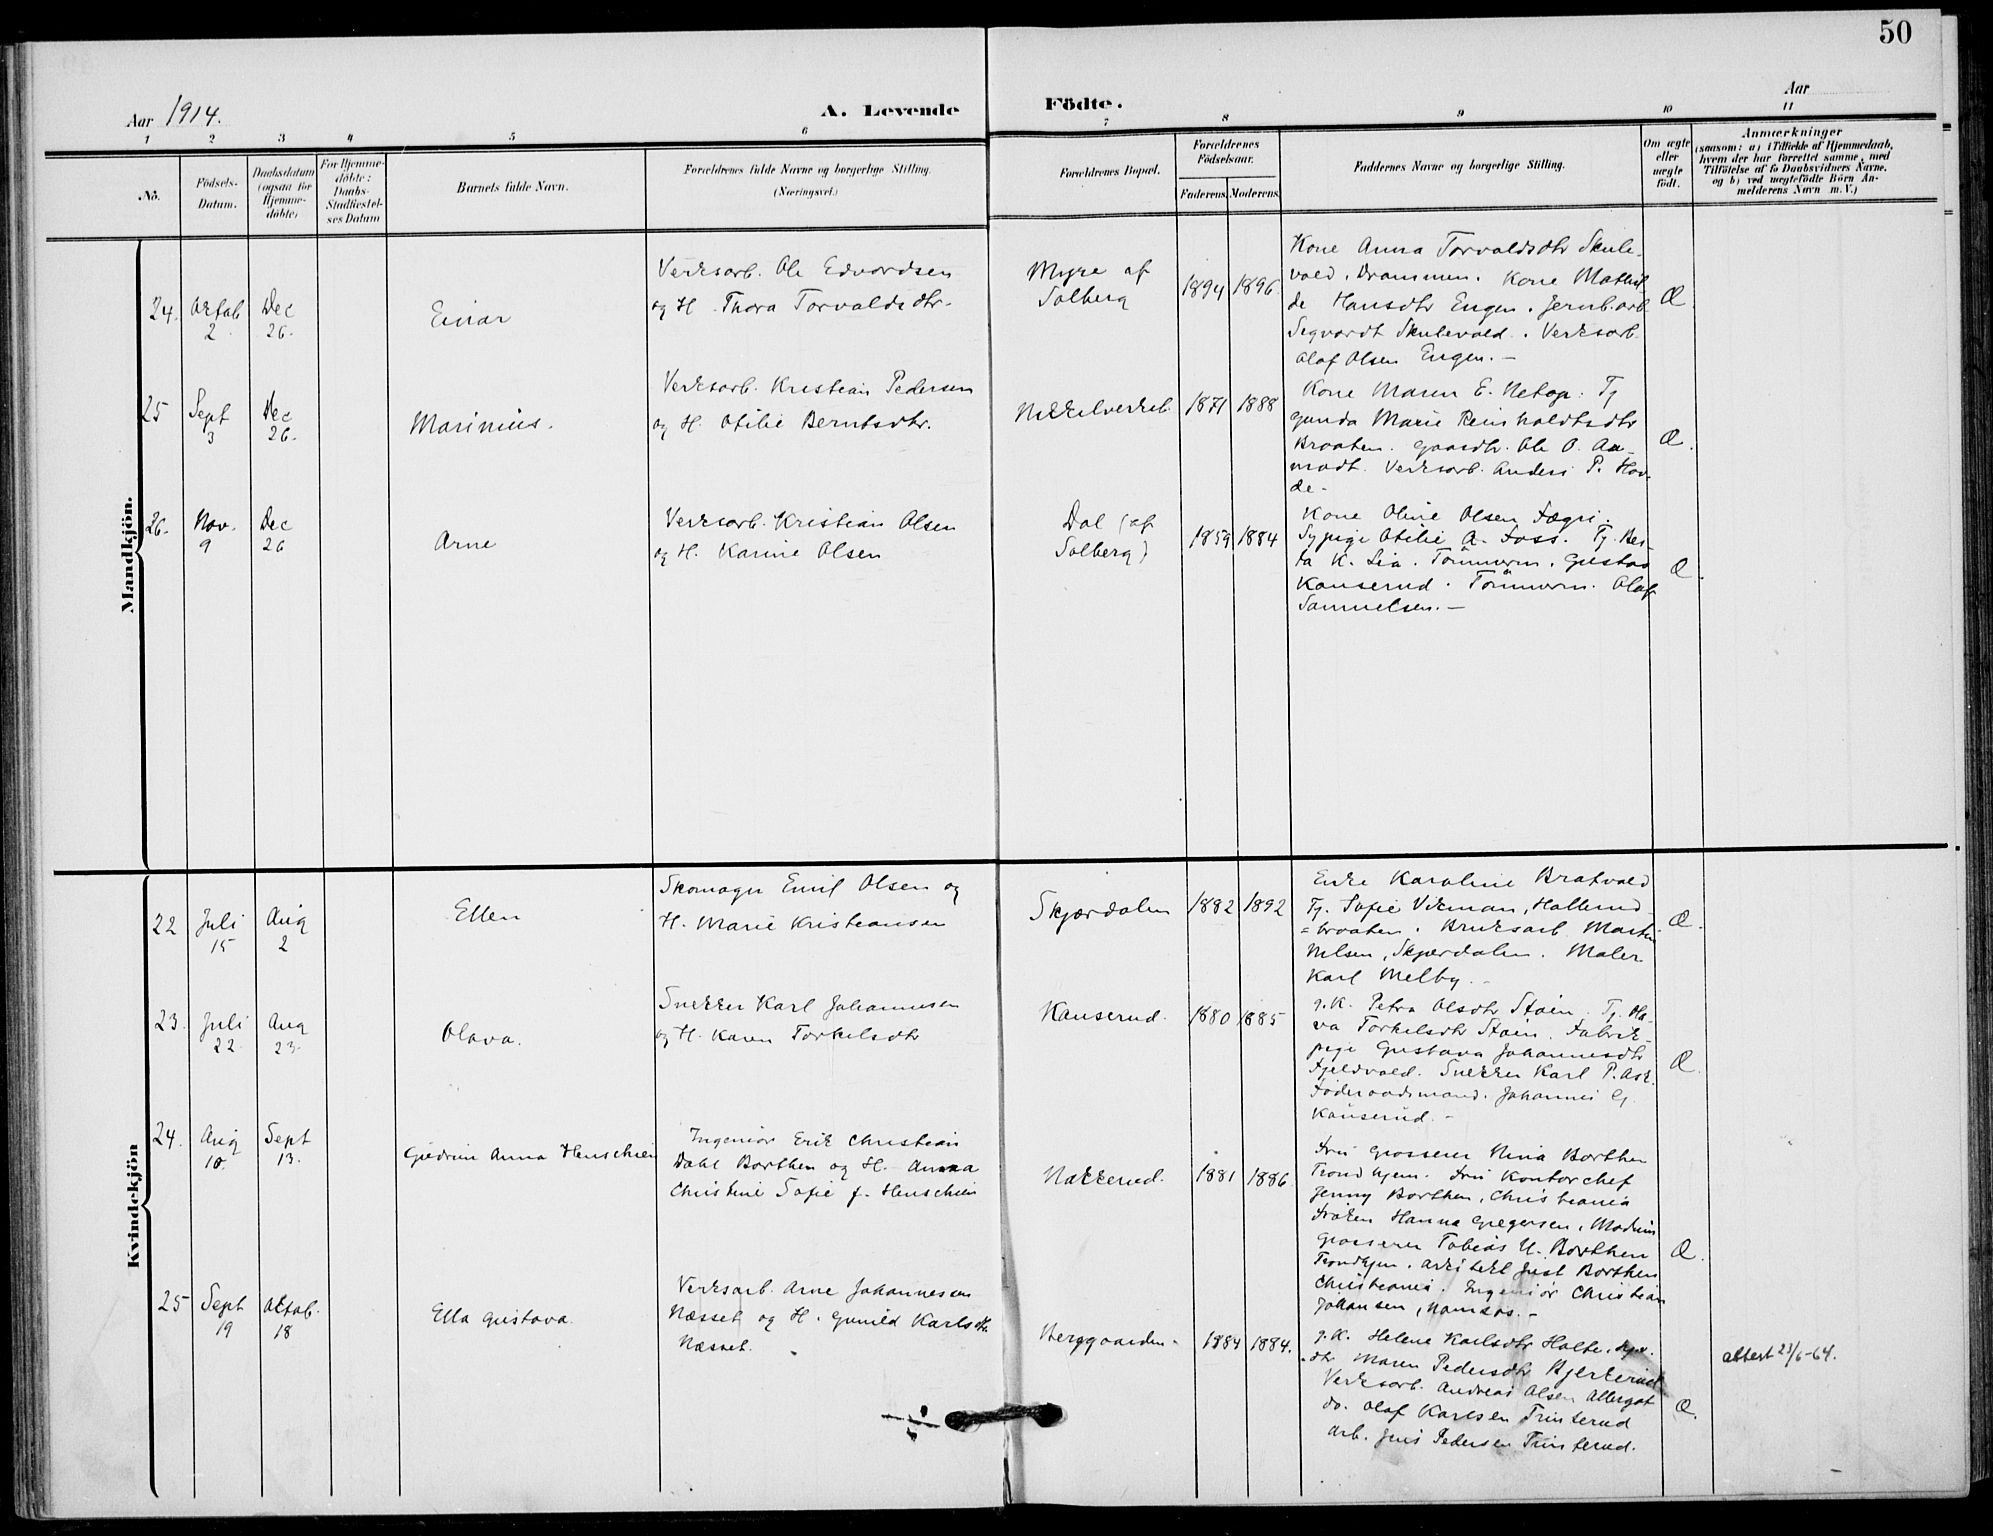 50
Aar 1914.
A. Levende Födte.
Aar
1 2 3 4 5 6 7 8 9 10 11
No.
Födsels-
Datum.
Daabsdatum
(ogsaa for
Hjemme-
döbte)
For Hjemme-
döbte:
Daabs-
Stadfæstel-
ses Datum
Barnets fulde Navn.
Forældrenes fulde Navne og borgerlige Stilling.
(Næringsvei.)
Forældrenes Bopæl.
Forældrenes
Födselsaar.
Faderens. Moderens.
Faddernes Navne og borgerlige Stilling.
Om ægte
eller
uægte
födt.
Anmærkninger
(saasom: a) i Tilfælde af Hjemmedaab,
hvem der har forrettet samme, med
Tilföielse af to Daabsvidners Navne,
og b) ved uægtefödte Börn An-
melderens Navn m. V.)
Mandkjön.
24.
Oktob
2
Dec
26.
Einar
Verksarb. Ole Edvardsen
og H. Thora Torvaldsdtr.
Myre af
Solberg
1894 1896
Kone Anna Torvaldsdtr Skule-
vold, Drammen. Kone Mathil
de Hansdtr Engen. Jernb.arb.
Segvardt Skulevold. Verksarb.
Olaf Olsen Engen. —
Æ
25
Sept
3
Dec
26.
Marinius.
Verksarb. Kristian Pedersen
og H. Otilie Berntsdtr.
Nikkelverket.
1871 1888
Kone Maren E. Tj
Gunda Marie Reinholdtsdtr
Braaten. Gaardbr. Ole O. Aa-
modt. Verksarb. Anders P. Hov-
de-
Æ.
26.
Nov.
9
Dec
26
Arne
Verksarb. Kristian Olsen
og H. Karine Olsen
Dal (af
Solberg)
1859 1884
Kone Oline Olsen
Sypige Otilie A. Foss. Tj. Ber-
ta K. Lia. Tömmerm. Gustav
Kanserud. Tömmerm. Olaf
Samuelsen. —
Æ.
Kvindekjön
22
Juli
15
Aug
2
Ellen
Skomager Emil Olsen og
H. Marie Kristiansen
Skjærdalen
1882 1892
Enke Karoline Bratvold
Tj. Sofie Vikman, Hallerud
=braaten. Bruksarb. Martin
Nilsen, Skjærdalen. Maler
Karl Melby. -
Æ.
23.
Juli
22
Aug
23.
Olava.
Snekker Karl Johannesen
og H. Karen Torkelsdtr
Kanserud.
1880 1885
g.K. Petra Olsdtr Stoin. Tj. Ola-
va Torkelsdtr Stoin. Fabrik-
pige Gustava Johannesdtr
Fjeldvold. Snekker Karl P. Ask.
Föderaadsmand. Johannes G.
Kanserud. -
Æ.
24.
Aug
10.
Sept
13.
Gudrun Anna Henschien
Ingeniör Erik Christian
Dahl Borthen og H. Anna
Christine Sofie f. Henschien
Nakkerud.
1881 1886.
Fru Grosserer Nina Borthen
Trondhjem. Fru Kontorchef
Jenny Borthen, Christiania
Fröken Hanna Gregersen, Modum
Grosserer Tobias U. Borthen
Trondhjem. Arkitekt Just Borthen
Christiania. Ingeniör Christian
Johansen, Namsos. -
Æ.
25
Sept
19
Oktob.
18
Ella Gustava.
Verksarb. Arne Johannesen
Næsset og H. Gunild Karlsdtr.
Næsset.
Berggaarden -
1884 1884.
g.K. Helene Karlsdtr Holte.
dtr Maren Pedersdtr Bjerkerud
Verksarb. Andreas Olsen
do. Olaf Karlsen Trinterud
Arb. Jens Pedersen Trinterud.
Æ.
attest 23/6-64.